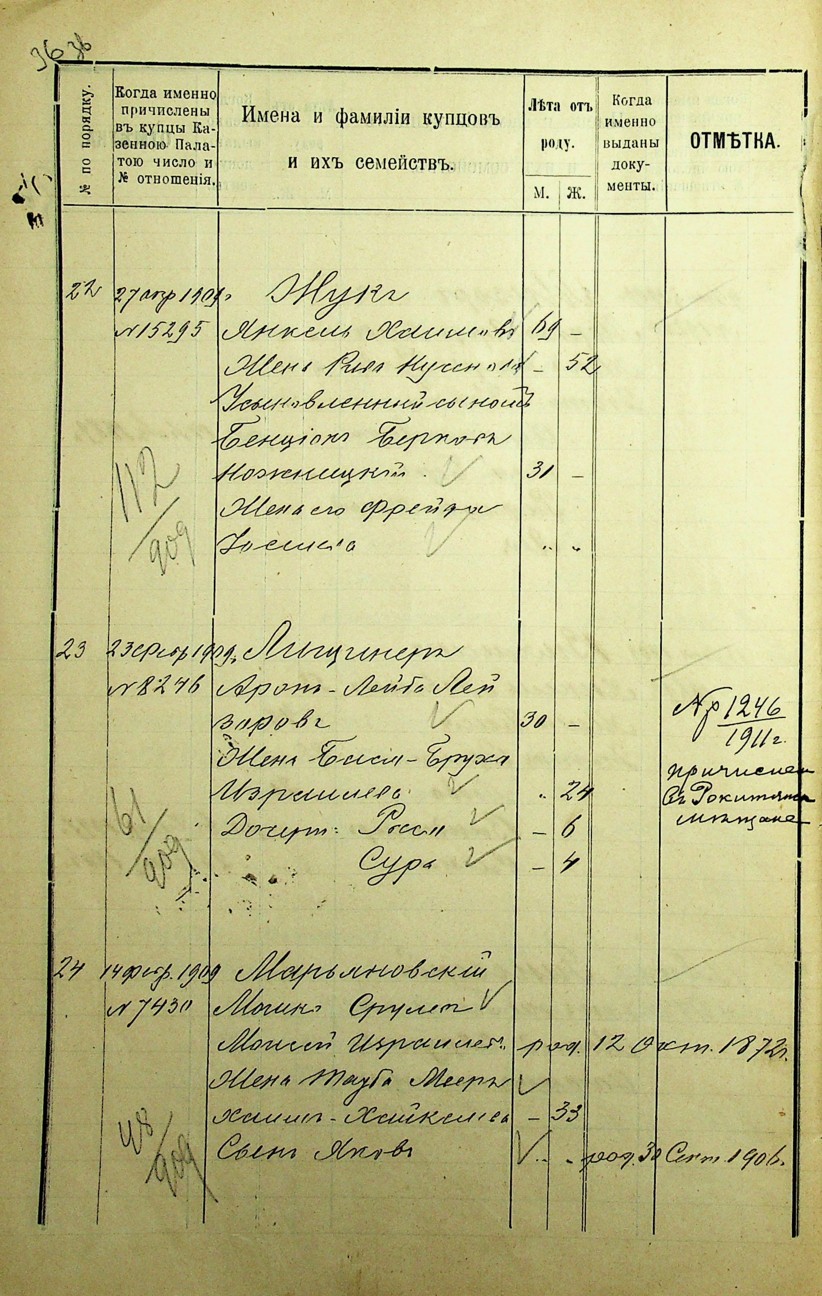 36 36
№ по порядку.
Когда именно
причислены
въ купцы Ка-
зенною Пала-
тою число и
№ отношенія.
Имена и фамиліи купцовъ
и ихъ семействъ.
Лѣта отъ
роду.
М. Ж.
Когда
именно
выданы
доку-
менты.
ОТМѢТКА.
22 27 апр 1909 г Жукъ
№ 15295 Янкель Хаимовъ 69 –
Жена Нухимова – 52
Усыновленный сыномъ
Бенціонъ Берковъ
Ножницкій 31 –
Жена его Фрейда
Іосиева " "
112/909
23 23 февр 1909 г
№ 8246 Аронъ-Лейба Лей
зоровъ 30 –
Жена Бася-Бруха
Израилева " 24
Дочери: Рося – 6
Сура – 4
61/909
№ р 1246/1911 г.
причислен
въ Рокитянск
мѣщане
24 14 февр. 1909 Марьяновскій
№ 7430 Мошко Срулев
Моисей Израилев. род. 12 Окт. 1872 г.
Жена Тауба Меера
Хаимъ-Хайкелева – 33
Сынъ Яковъ " " род. 30 Сент. 1906.
48/909